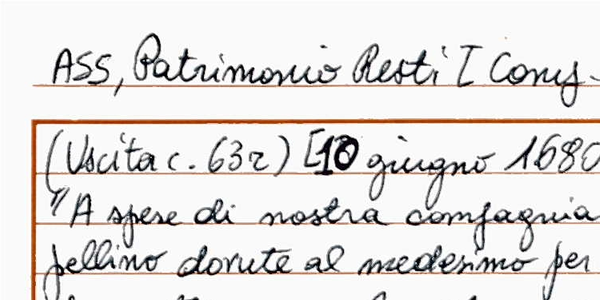 ASS, Patrimonio Resti I Comp
(Uscita c. 63r) [10 giugno 1680
"A spese di nostra compagnia
pellino dovute al medesimo per